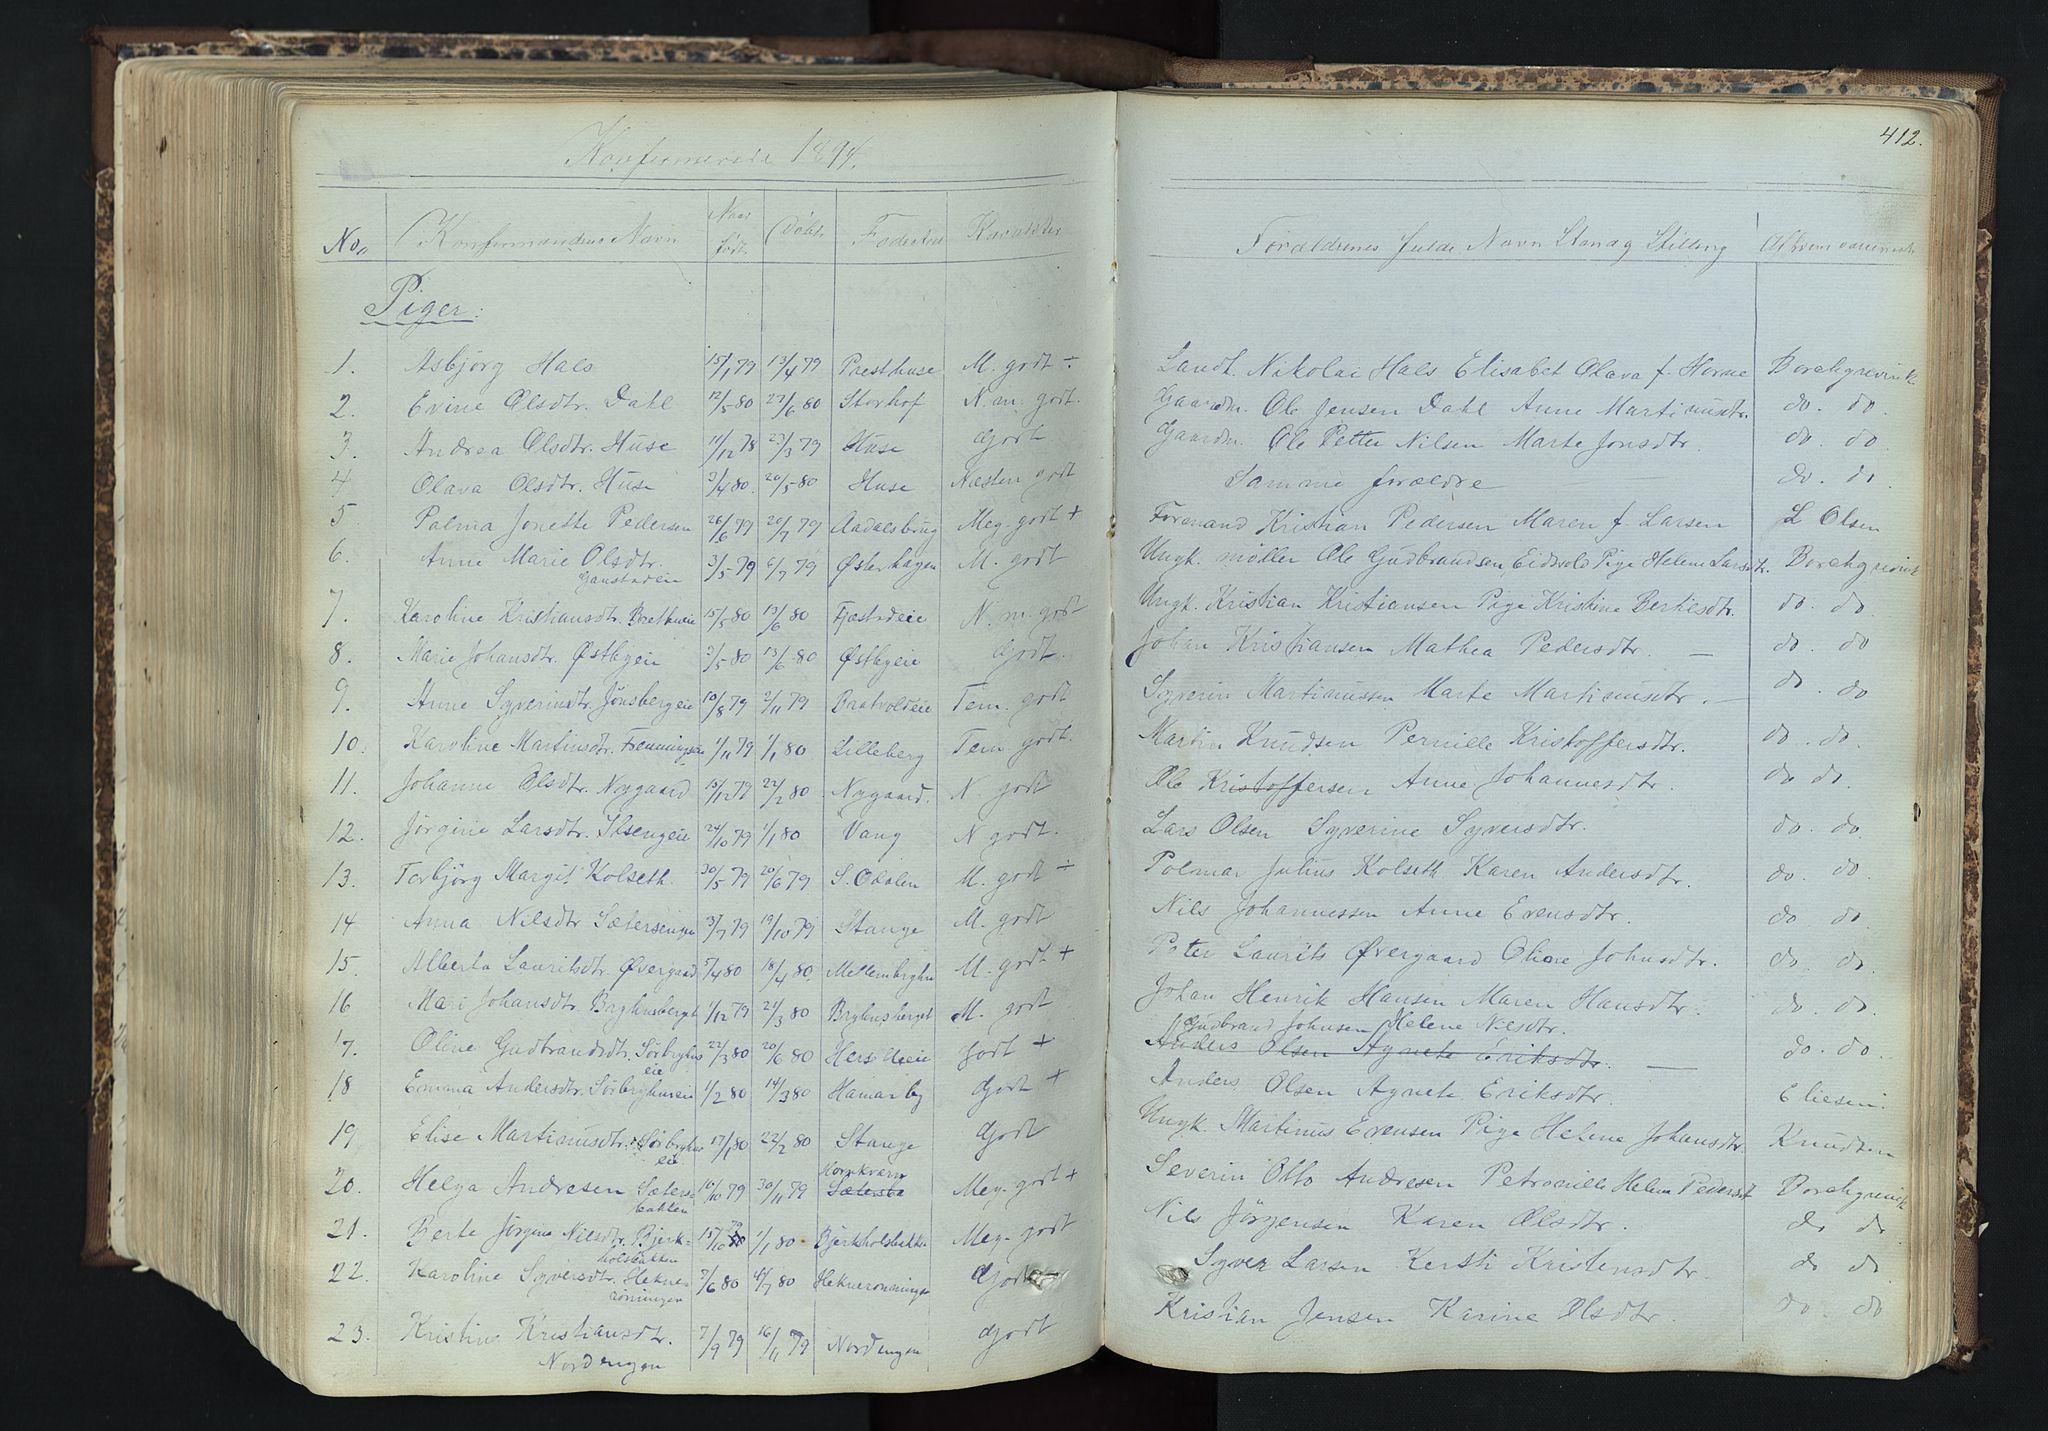 412.
Konfirmerede 1894.
No. Konfirmandens Navn Naar født Døbt Fødested Karakter Foræeldrenes fulde Navn Stand og Stilling Af hvem vaccineret
Piger.
1. Asbjörg Hals 15/1 79 13/4 79 Præsthuse M. godt ÷ Landh. Nikolai Hals Elisabet Olava f. Horne Borchgrevink
2. Evine Olsdtr. Dahl 12/5 80 27/6 80 Storhof N. m. godt. Gaardm. Ole Jensen Dahl Anne Martinusdtr. do. do.
3. Andrea Olsdtr. Huse 11/12 78 23/3 79 Huse Godt Gaardm. Ole Petter Nilsen Marte Jonsdtr. do. do
4. Olava Olsdtr. Huse 3/4 80. 20/5 80 Huse Næsten godt Samme forældre do. do.
5. Palma Jonette Pedersen 26/6 79 20/7 79 Aadalsbrug Meg. godt + Formand Kristian Pedersen Maren f. Larsen L Olsen
6. Anne Marie Olsdtr. Gaustadeie 3/5 79 6/7 79 Østerhagen M. godt Ungk. møller Ole Gudbrandsen, Eidsvold Pige Helene Larsdtr. Borchgrevink
7. Karoline Kristiansdtr. 15/5 80 13/6 80 Fjæstadeie N. m. godt Ungk. Kristian Kristiansen Pige Kristine Bertiesdtr. do. do
8. Marie Johansdtr. Østbyeie 3/5 80 13/6 80 Østbyeie Godt. Johan Kristiansen Mathea Pedersdtr. — do. do
9. Anne Syverinsdtr. Jönsbergeie 10/8 79 2/11 79 Bratvoldeie Tem. godt Syverin Martinussen Marte Martinusdtr. — do. do
10. Karoline Martinsdtr. 1/11 79 1/1 80 Lilleberg Tem. godt. Martin Knudsen Pernille Kristoffersdtr. do. do.
11. Johanne Olsdtr. Nygaard 15/12 79 22/2 80 Nygaard. N. godt Ole Kristoffersen Anne Johannesdtr. do do.
12. Jørgine Larsdtr. Ilsengeie 24/10 79 1/1 80 Vang N godt. Lars Olsen Syverine Syversdtr. do. do.
13. Torbjörg Margit Kolseth. 30/5 79 20/6 79 S. Odalen M. godt ÷ Polmar Julius Kolseth Karen Andersdtr. do. do.
14. Anna Nilsdtr Sætersengen 13/7 79 19/10 79 Stange M. godt Nils Johannessen Anne Evensdtr. do do.
15. Alberta Lauritsdtr. Øvergaard 5/4 80 18/4 80. M. godt + Peter Laurits Øvergaard Oline Johnsdtr. do. do.
16 Mari Johansdtr. Bryhnsberget 1/12 79 21/3 80 Bryhnsberget M. godt Johan Henrik Hansen Maren Hansdtr. do. do.
17. Oline Gudbrandsdtr. Sörbryhns eie 22/3 80 20/6 80 Godt + Gudbrand Johnsen Helene Nilsdtr. Anders Olsen Agnete Eriksdtr. — do. do.
18 Emma Andersdtr. Sörbryhnseie 1/2 80 14/3 80 Hamar by Godt + Anders Olsen Agnete Eriksdtr. Eliesen.
19. Elise Martinusdtr. Sörbryhns eie 17/1 80 22/2 80 Stange Godt Ungk. Martinus Evensen Pige Helene Johansdtr. Knudsen
20. Helga Andresen Sæters- bakken 10/10 79 30/11 79 Hornkværn Meg. godt + Severin Otto Andresen Petronille Helene Pedersdt Borchgrevink
21. Berte Jørgine Nilsdtr. Bjerk- holsbakken 15/10 79 1/1 80 Bjerkholsbakk. Meg. godt Nils Jörgensen Karen Olsdtr. do do
22. Karoline Syversdtr. Hekne- rönningen 7/6 80 4/7 80 Heknerønningen Godt Syver Larsen Kersti Kristensdtr. do do.
23. Kristine Kristiansdtr. Nordengen 7/9 79 16/11 79 Nordengen Godt Kristian Jensen Karine Olsdtr. do. do